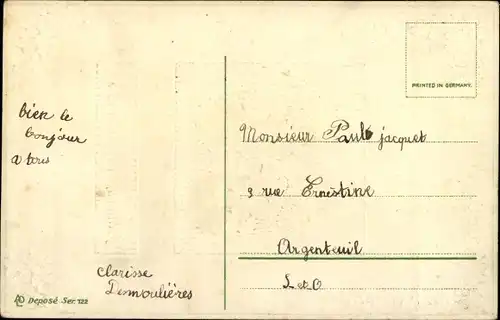 bien le
bonjour
a tous
Clarisse
Desmoulières
Deposé Ser. 122
PRINTED IN GERMANY.
Monsieur Paul jacquet
9 rue Ernestine
Argenteuil
S et O